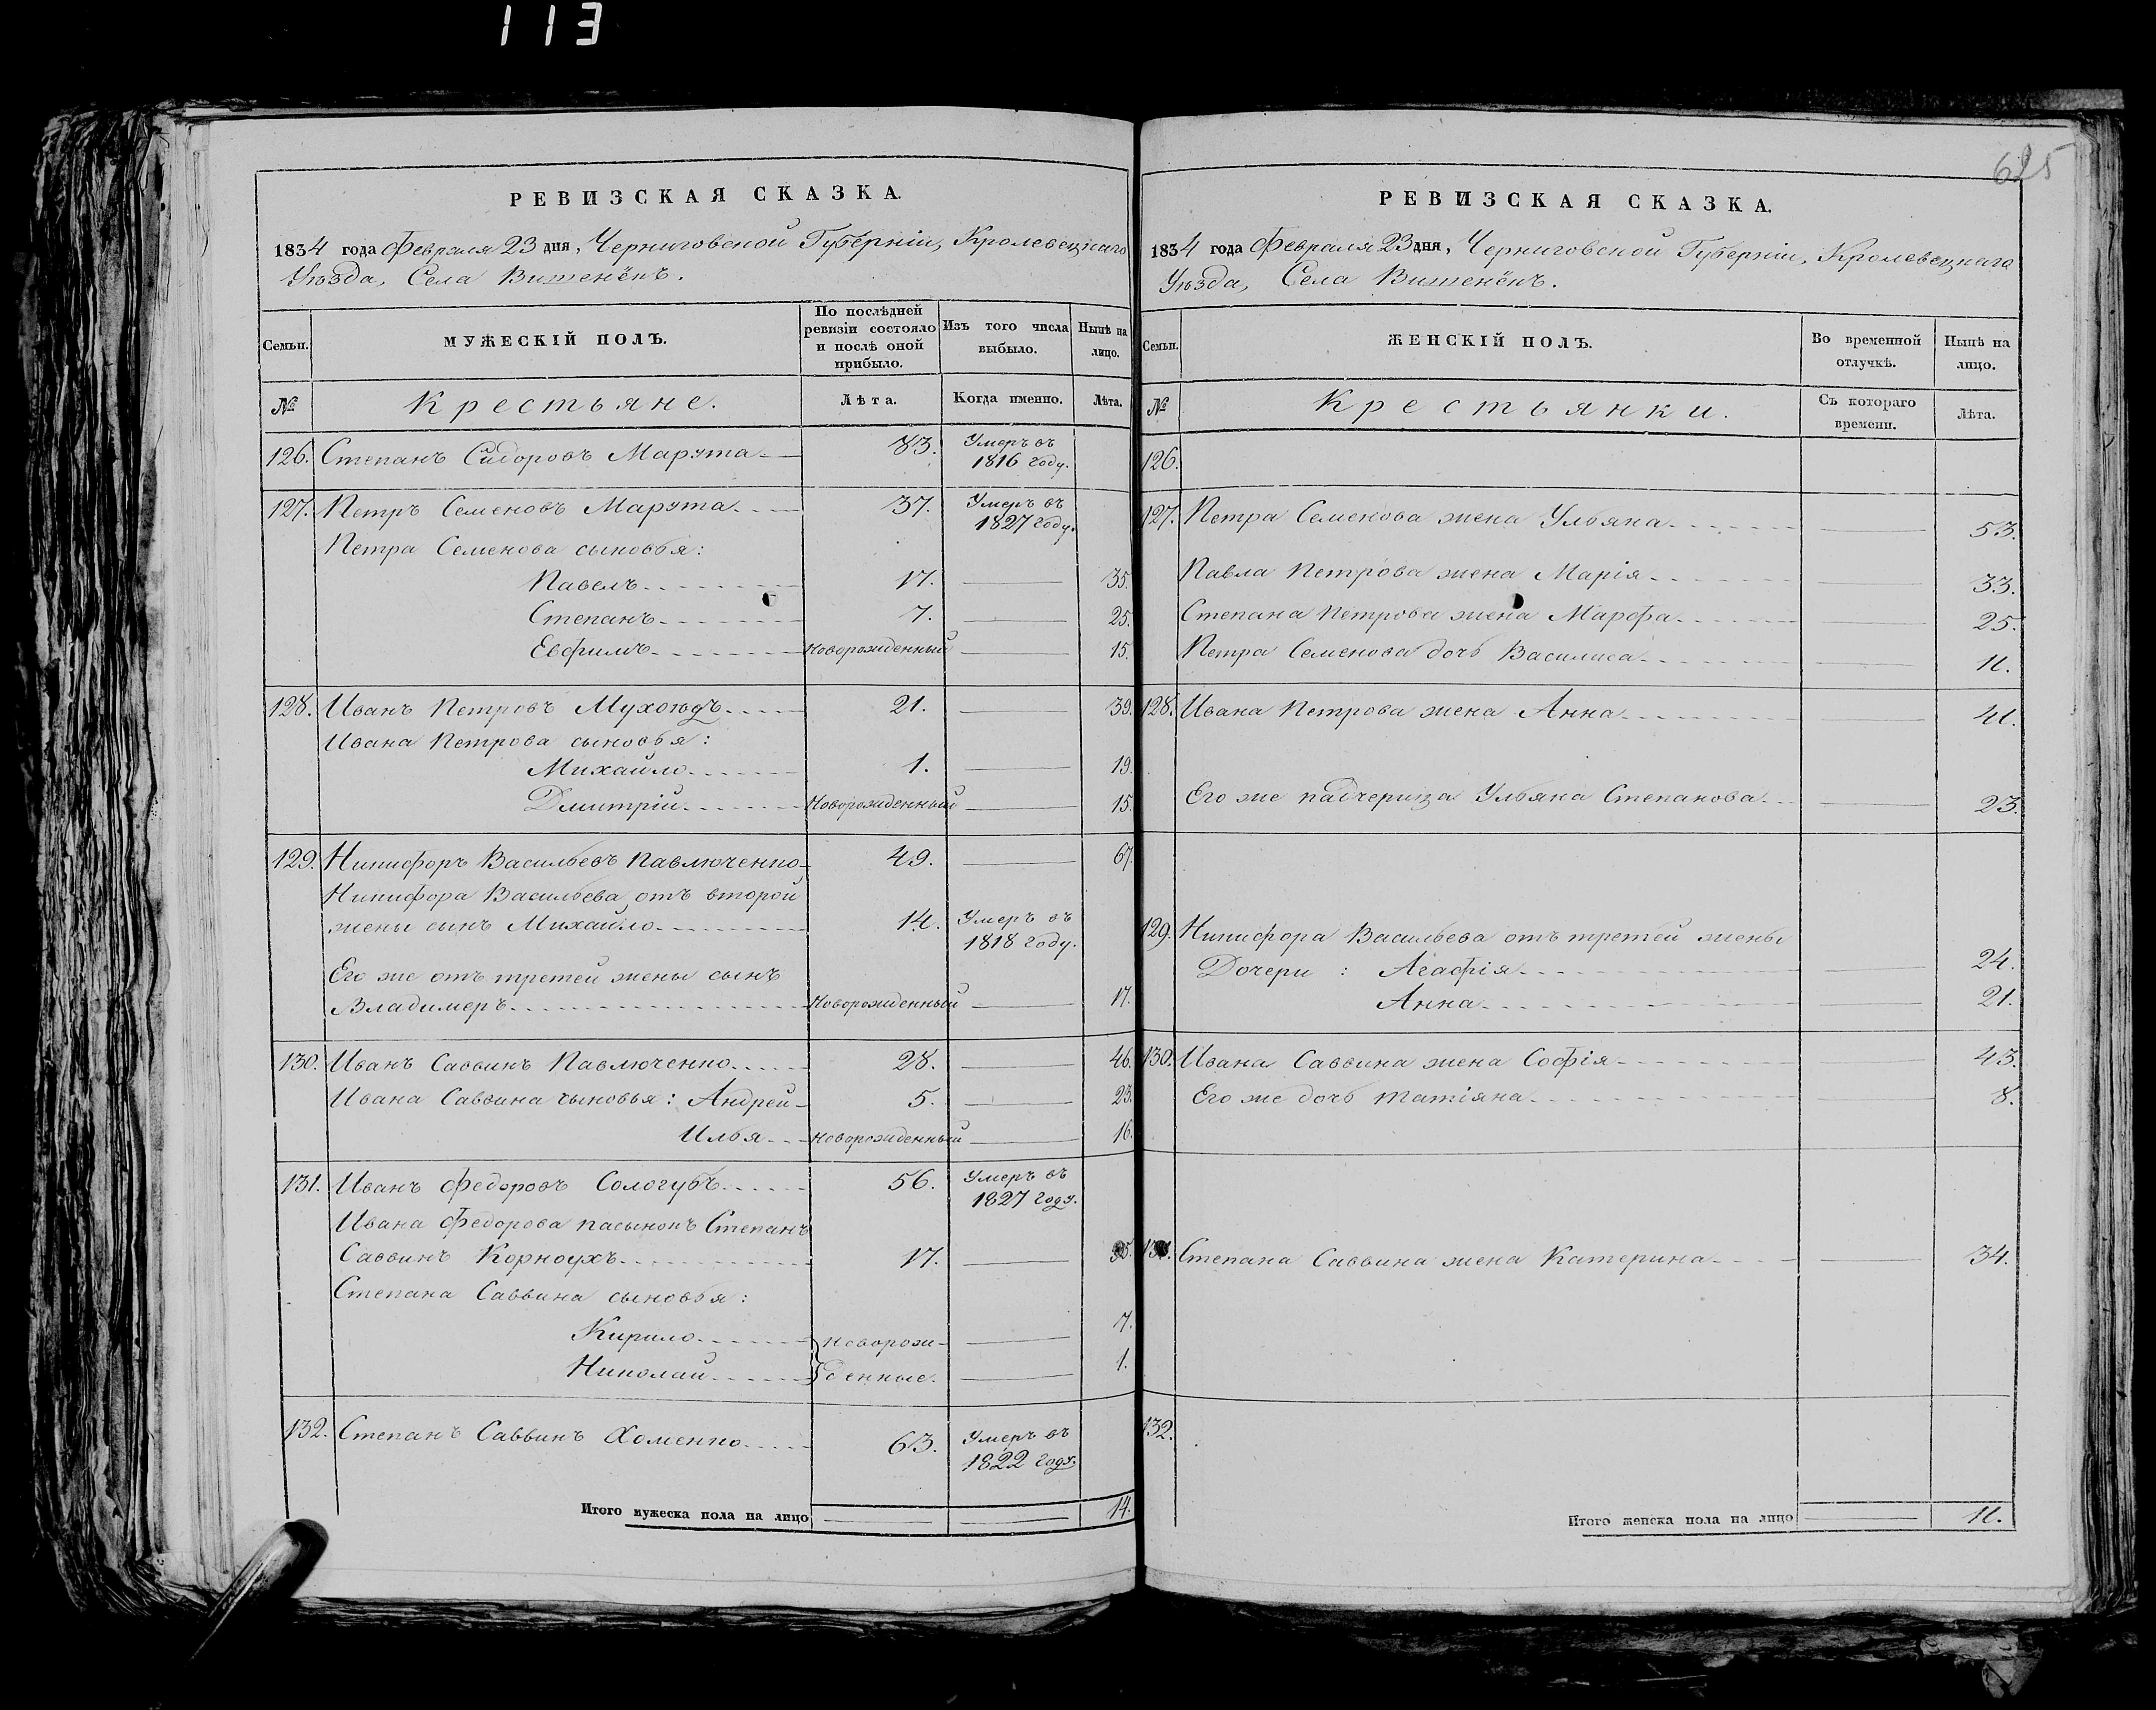 113
625
РЕВИЗСКАЯ СКАЗКА.
1834 года Февраля 23 дня, Черниговской Губерніи, Кролевецкаго
Уѣзда, Села Вишенёкъ.
Семьи. МУЖЕСКІЙ ПОЛЪ. По послѣдней ревизіи состояло и послѣ оной прибыло. Изъ того числа выбыло. Нынѣ на лицо.
№ Крестьяне. Лѣта. Когда именно. Лѣта.
126. Степанъ Сидоровъ Марута 83. Умеръ въ 1816 году.
127. Петръ Семеновъ Марута 37. Умеръ въ 1827 году.
Петра Семенова сыновья:
Павелъ 17. 35.
Степанъ 7. 25.
Евфимъ Новорожденный 15.
128. Иванъ Петровъ Мухоюдъ 21. 39.
Ивана Петрова сыновья:
Михайло 1. 19.
Дмитрій Новорожденный 15.
129. Никифоръ Васильевъ Павлюченко 49. 67.
Никифора Васильева отъ второй
жены сынъ Михайло 14. Умеръ въ 1818 году.
Его же отъ третей жены сынъ
Владимеръ Новорожденный 17.
130. Иванъ Саввинъ Павлюченко 28. 46.
Ивана Саввина сыновья: Андрей 5. 23.
Илья Новорожденный 16.
131. Иванъ Федоровъ Сологубъ 56. Умеръ въ 1827 году.
Ивана Федорова пасынокъ Степанъ
Саввинъ Корноухъ 17. 35.
Степана Саввина сыновья:
Кирило Новорож- 7.
Николай денные. 1.
132. Степанъ Саввинъ Хоменко 63. Умеръ въ 1822 году.
Итого мужеска пола на лицо 14.
РЕВИЗСКАЯ СКАЗКА.
1834 года Февраля 23 дня, Черниговской Губерніи, Кролевецкаго
Уѣзда, Села Вишенёкъ.
Семьи. ЖЕНСКІЙ ПОЛЪ. Во временной отлучкѣ. Нынѣ на лицо.
№ Крестьянки. Съ котораго времени. Лѣта.
126.
127. Петра Семенова жена Ульяна 53.
Павла Петрова жена Марія 33.
Степана Петрова жена Марфа 25.
Петра Семенова дочь Василиса 11.
128. Ивана Петрова жена Анна 41.
Его же падчерица Ульяна Степанова 23.
129. Никифора Васильева отъ третей жены
Дочери: Агафія 24.
Анна 21.
130. Ивана Саввина жена Софія 43.
Его же дочь Татіяна 8.
131. Степана Саввина жена Катерина 34.
132.
Итого женска пола на лицо 11.